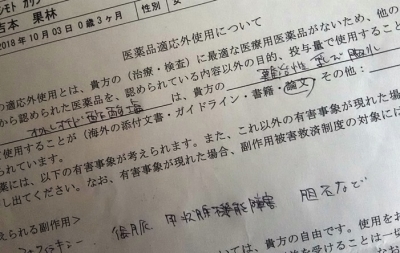 吉本 果林
2016年10月03日 0歳3ヶ月 性別 女
医薬品適応外使用について
の適応外使用とは、貴方の（治療・検査）に最適な医療用医薬品がないため、他の
から認められた医薬品を、認められている内容以外の目的、投与量で使用すること
は、貴方の 難治性乳び胸水
て使用することが（海外の添付文書・ガイドライン・書籍・論文）その他：
られています。
薬には、以下の有害事象が考えられます。また、これ以外の有害事象が現れた場
し出てください。なお、有害事象が現れた場合、副作用被害救済制度の対象には
えられる副作用>
甲状腺機能障害 胆石など
ては、貴方の自由です。使用をお
を受けることは一切